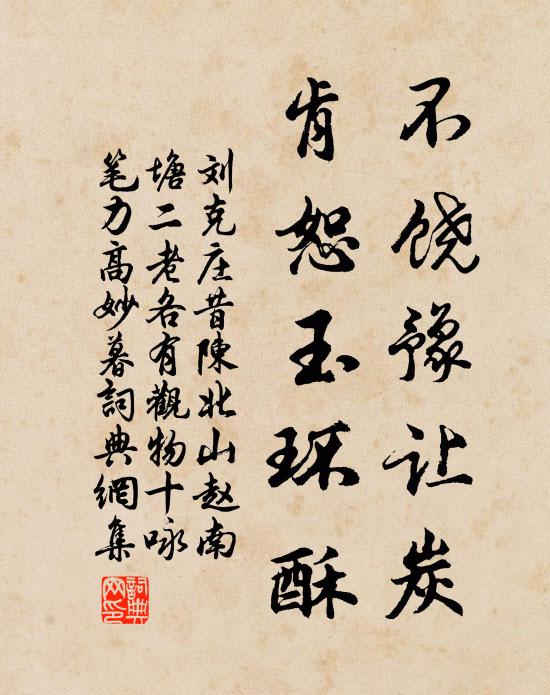 不饶豫让炭
肯恕玉环酥
刘克庄昔陳北山赵南
塘二老各有觀物十咏
笔力高妙暮詞典網集
詞典网印